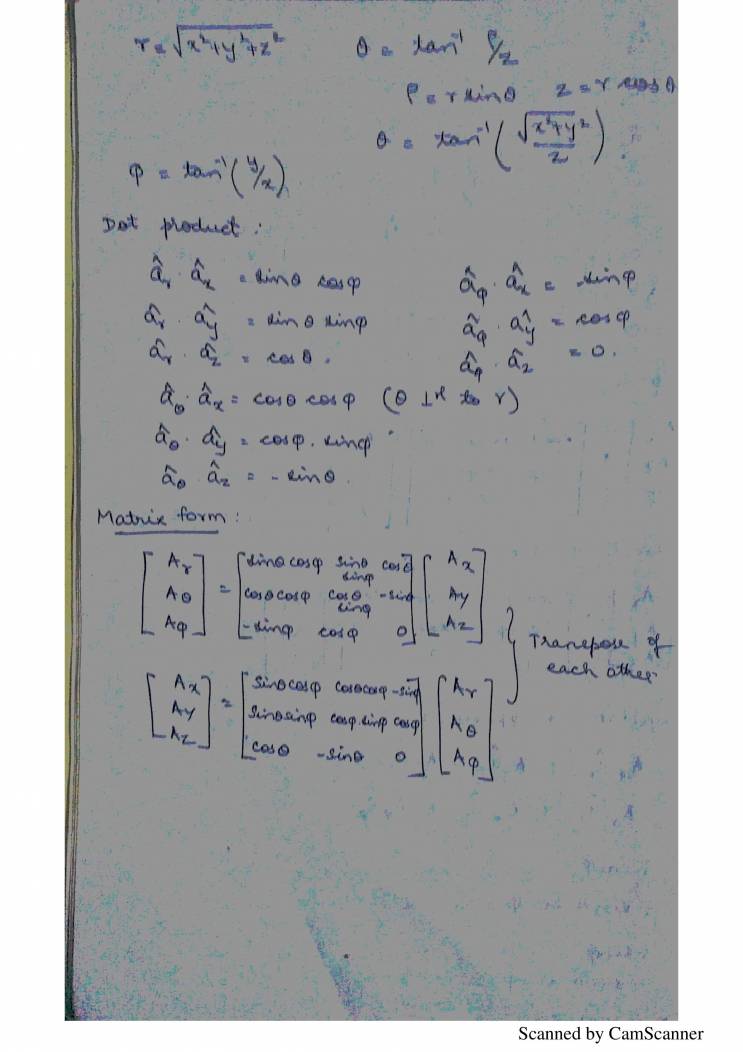 r = √x²+y²+z² θ = tan⁻¹ ρ/z
ρ = r sinθ z = r cosθ
θ = tan⁻¹ ( √x²+y² / z ).
φ = tan⁻¹ ( y/x )
Dot product :
âr · âx = sinθ cosφ âφ · âx = -sinφ
âr · ây = sinθ sinφ âφ · ây = cosφ
âr · âz = cosθ. âφ · âz = 0.
âθ · âx = cosθ cosφ (θ ⊥rl to r)
âθ · ây = cosφ. sinφ
âθ · âz = - sinθ.
Matrix form :
[ Ar ] = [ sinθ cosφ sinθ sinφ cosθ ] [ Ax ]
[ Aθ ] [ cosθ cosφ cosθ sinφ -sinθ ] [ Ay ]
[ Aφ ] [ -sinφ cosφ 0 ] [ Az ]
} Transpose of
each other
[ Ax ] = [ sinθ cosφ cosθ cosφ -sinφ ] [ Ar ]
[ Ay ] [ sinθ sinφ cosφ. sinφ cosφ ] [ Aθ ]
[ Az ] [ cosθ -sinθ 0 ] [ Aφ ]
Scanned by CamScanner